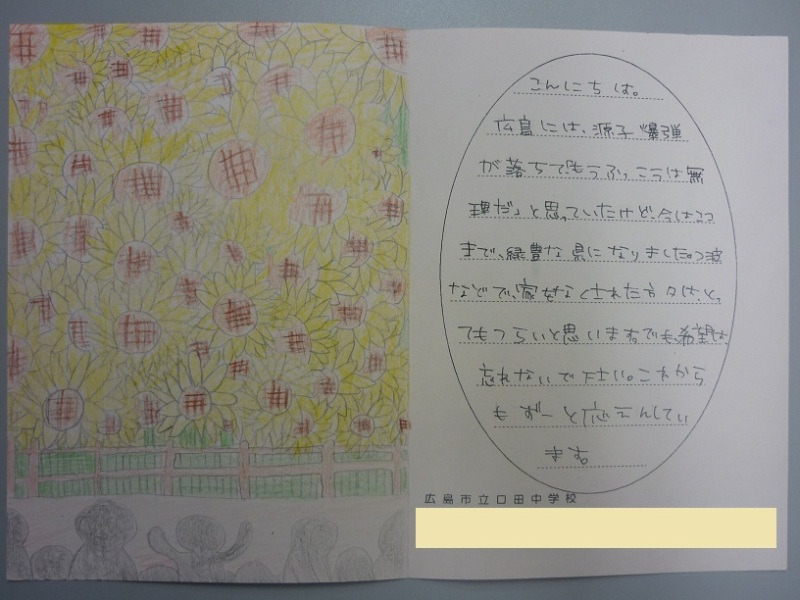 こんにちは。
広島には、源子爆弾
が落ちて、もうふっこうは無
理だ」と思っていたけど、今はここ
まで、緑豊な県になりました。つ波
などで、家をなくされた方々は、と
てもつらいと思います。でも、希望は
忘れないで下さい。これから
もずーと応えんしてい
ます。
広島市立口田中学校